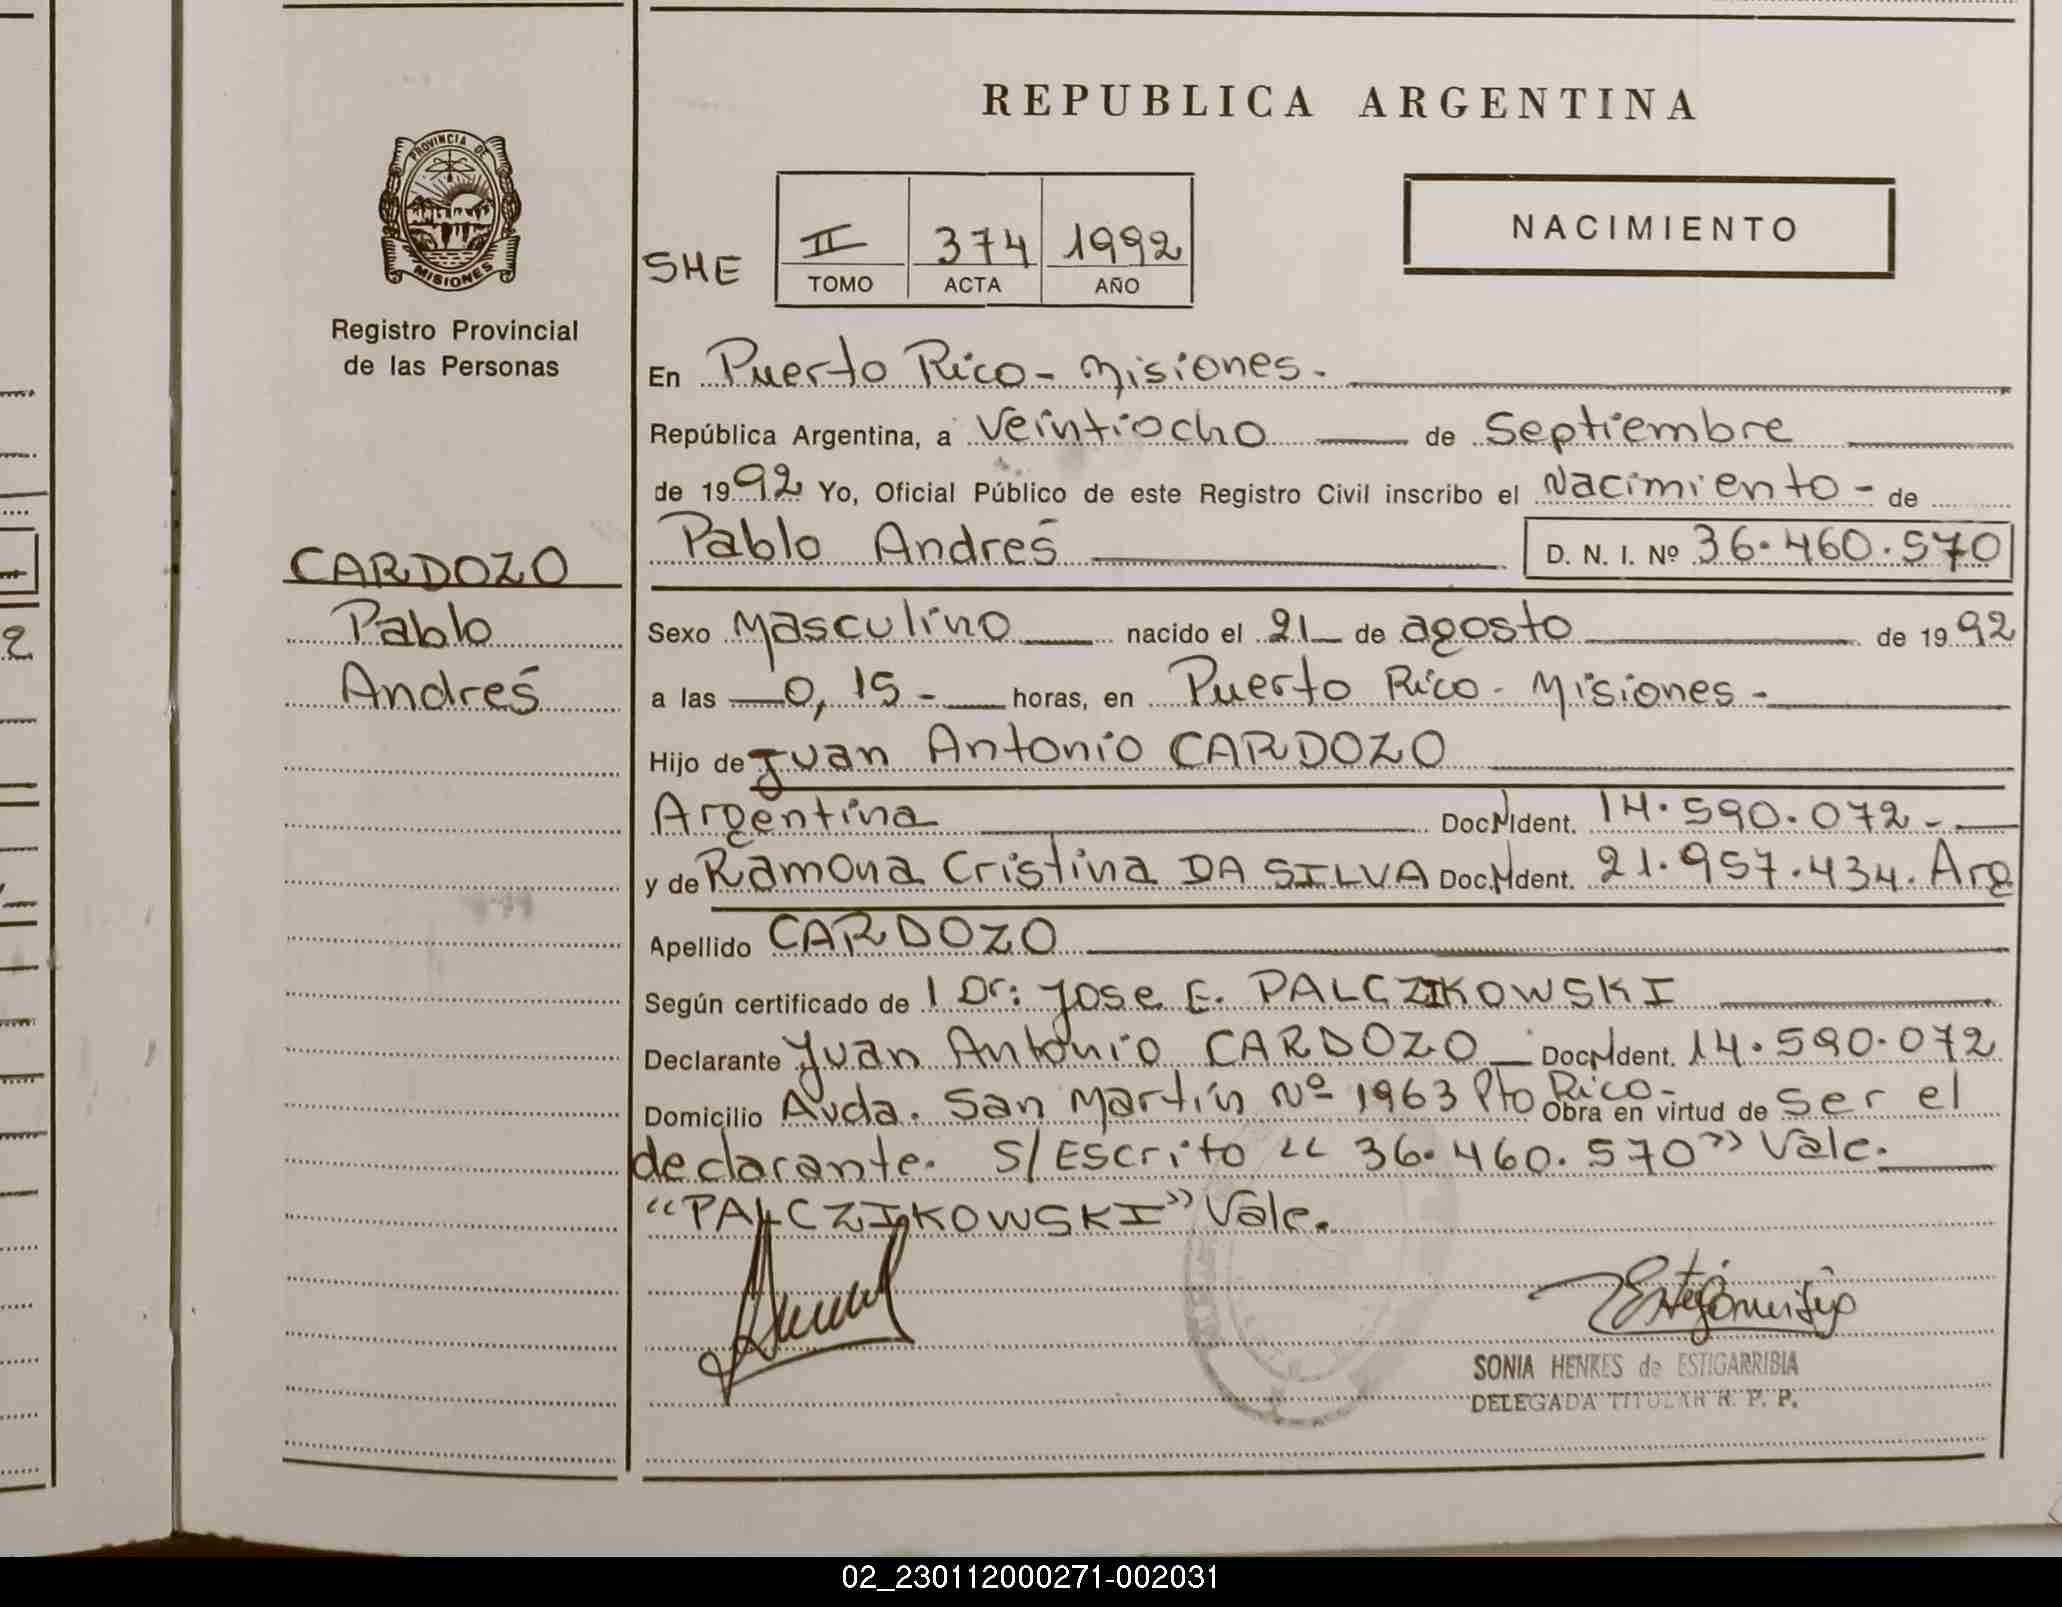 REPUBLICA ARGENTINA
PROVINCIA DE
MISIONES
Registro Provincial
de las Personas
NACIMIENTO
SHE
II 374 1992
TOMO ACTA AÑO
En Puerto Rico - Misiones.-
República Argentina, a Veintiocho de Septiembre
de 1992 Yo, Oficial Público de este Registro Civil inscribo el Nacimiento - de
Pablo Andrés D. N. I. Nº 36.460.570
CARDOZO
Pablo
Andrés
Sexo Masculino nacido el 21 de agosto de 1992
a las 0,15 - horas, en Puerto Rico - Misiones -
Hijo de Juan Antonio CARDOZO
Argentina Doc. N Ident. 14.590.072 -
y de Ramona Cristina DA SILVA Doc. N Ident. 21.957.434. Arg
Apellido CARDOZO
Según certificado de l Dr: Jose E. PALCZIKOWSKI
Declarante Juan Antonio CARDOZO - Doc. N Ident. 14.590.072
Domicilio Avda. San Martín Nº 1963 Pto Rico - Obra en virtud de ser el
declarante. S/Escrito "36.460.570" Vale.
"PALCZIKOWSKI" Vale.
SONIA HENKES de ESTIGARRIBIA
DELEGADA TITULAR R. P. P.
02_230112000271-002031